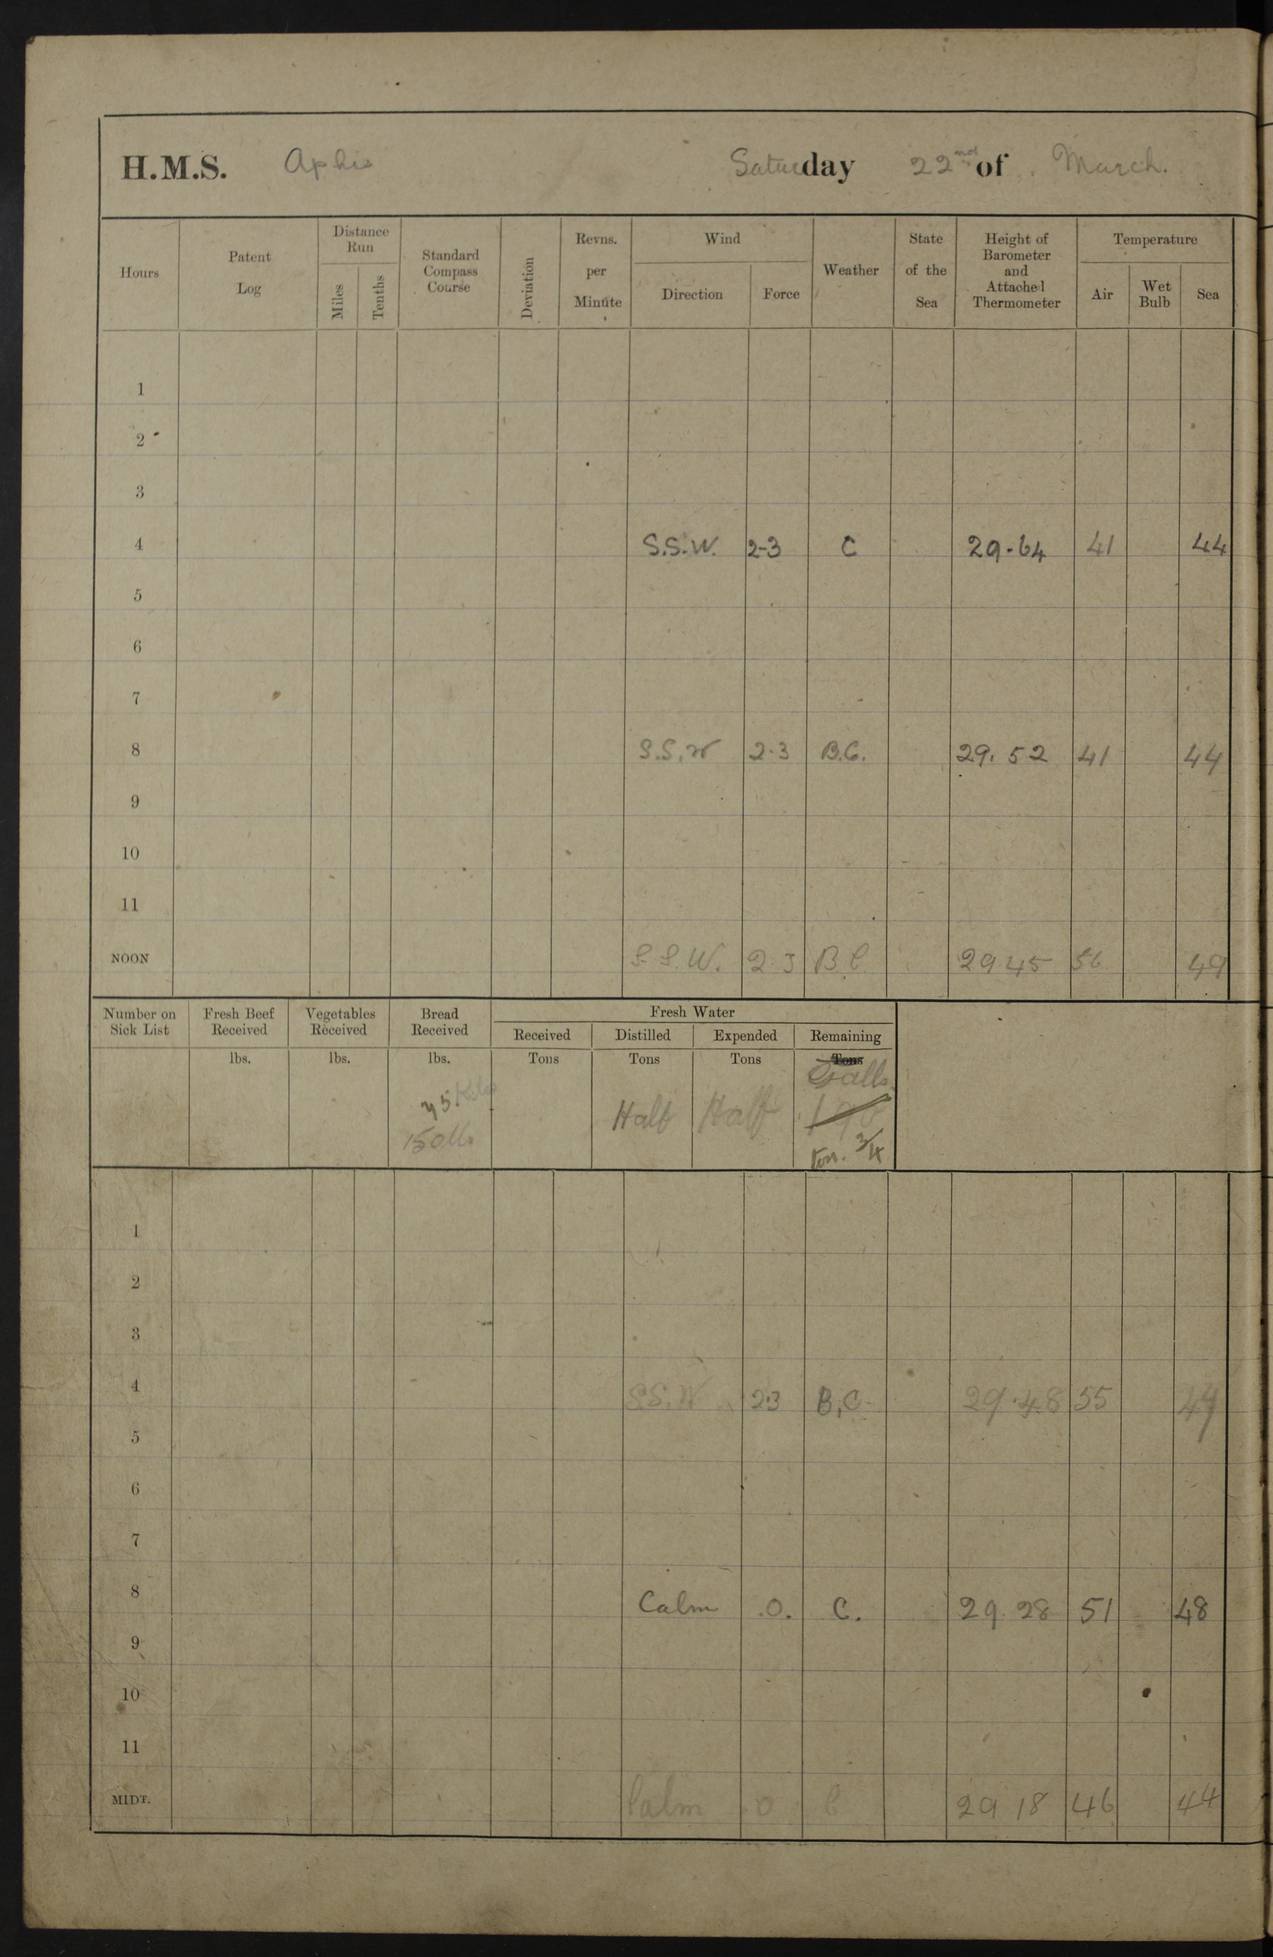 H.M.S. Aphis Saturday 22nd of March.
Hours Patent Log Distance Run Miles Tenths Standard Compass Course Deviation Revns. per Minute Wind Direction Force Weather State of the Sea Height of Barometer and Attached Thermometer Temperature Air Wet Bulb Sea
1
2
3
4 S.S.W. 2-3 C 29.64 41 44
5
6
7
8 S.S.W 2.3 B.C. 29.52 41 44
9
10
11
NOON S.S.W. 2.3 B C 29 45 56 49
Number on Sick List Fresh Beef Received Vegetables Received Bread Received Fresh Water
Received Distilled Expended Remaining
lbs. lbs. lbs. Tons Tons Tons Tons
Galls
75 Kilo Half Half 190
150 lbs ton. 3/4
1
2
3
4 S.S.W 2.3 B.C. 29.48 55 49
5
6
7
8 Calm .0. C. 29.28 51 48
9
10
11
MIDT. Calm 0 C 29 18 46 44